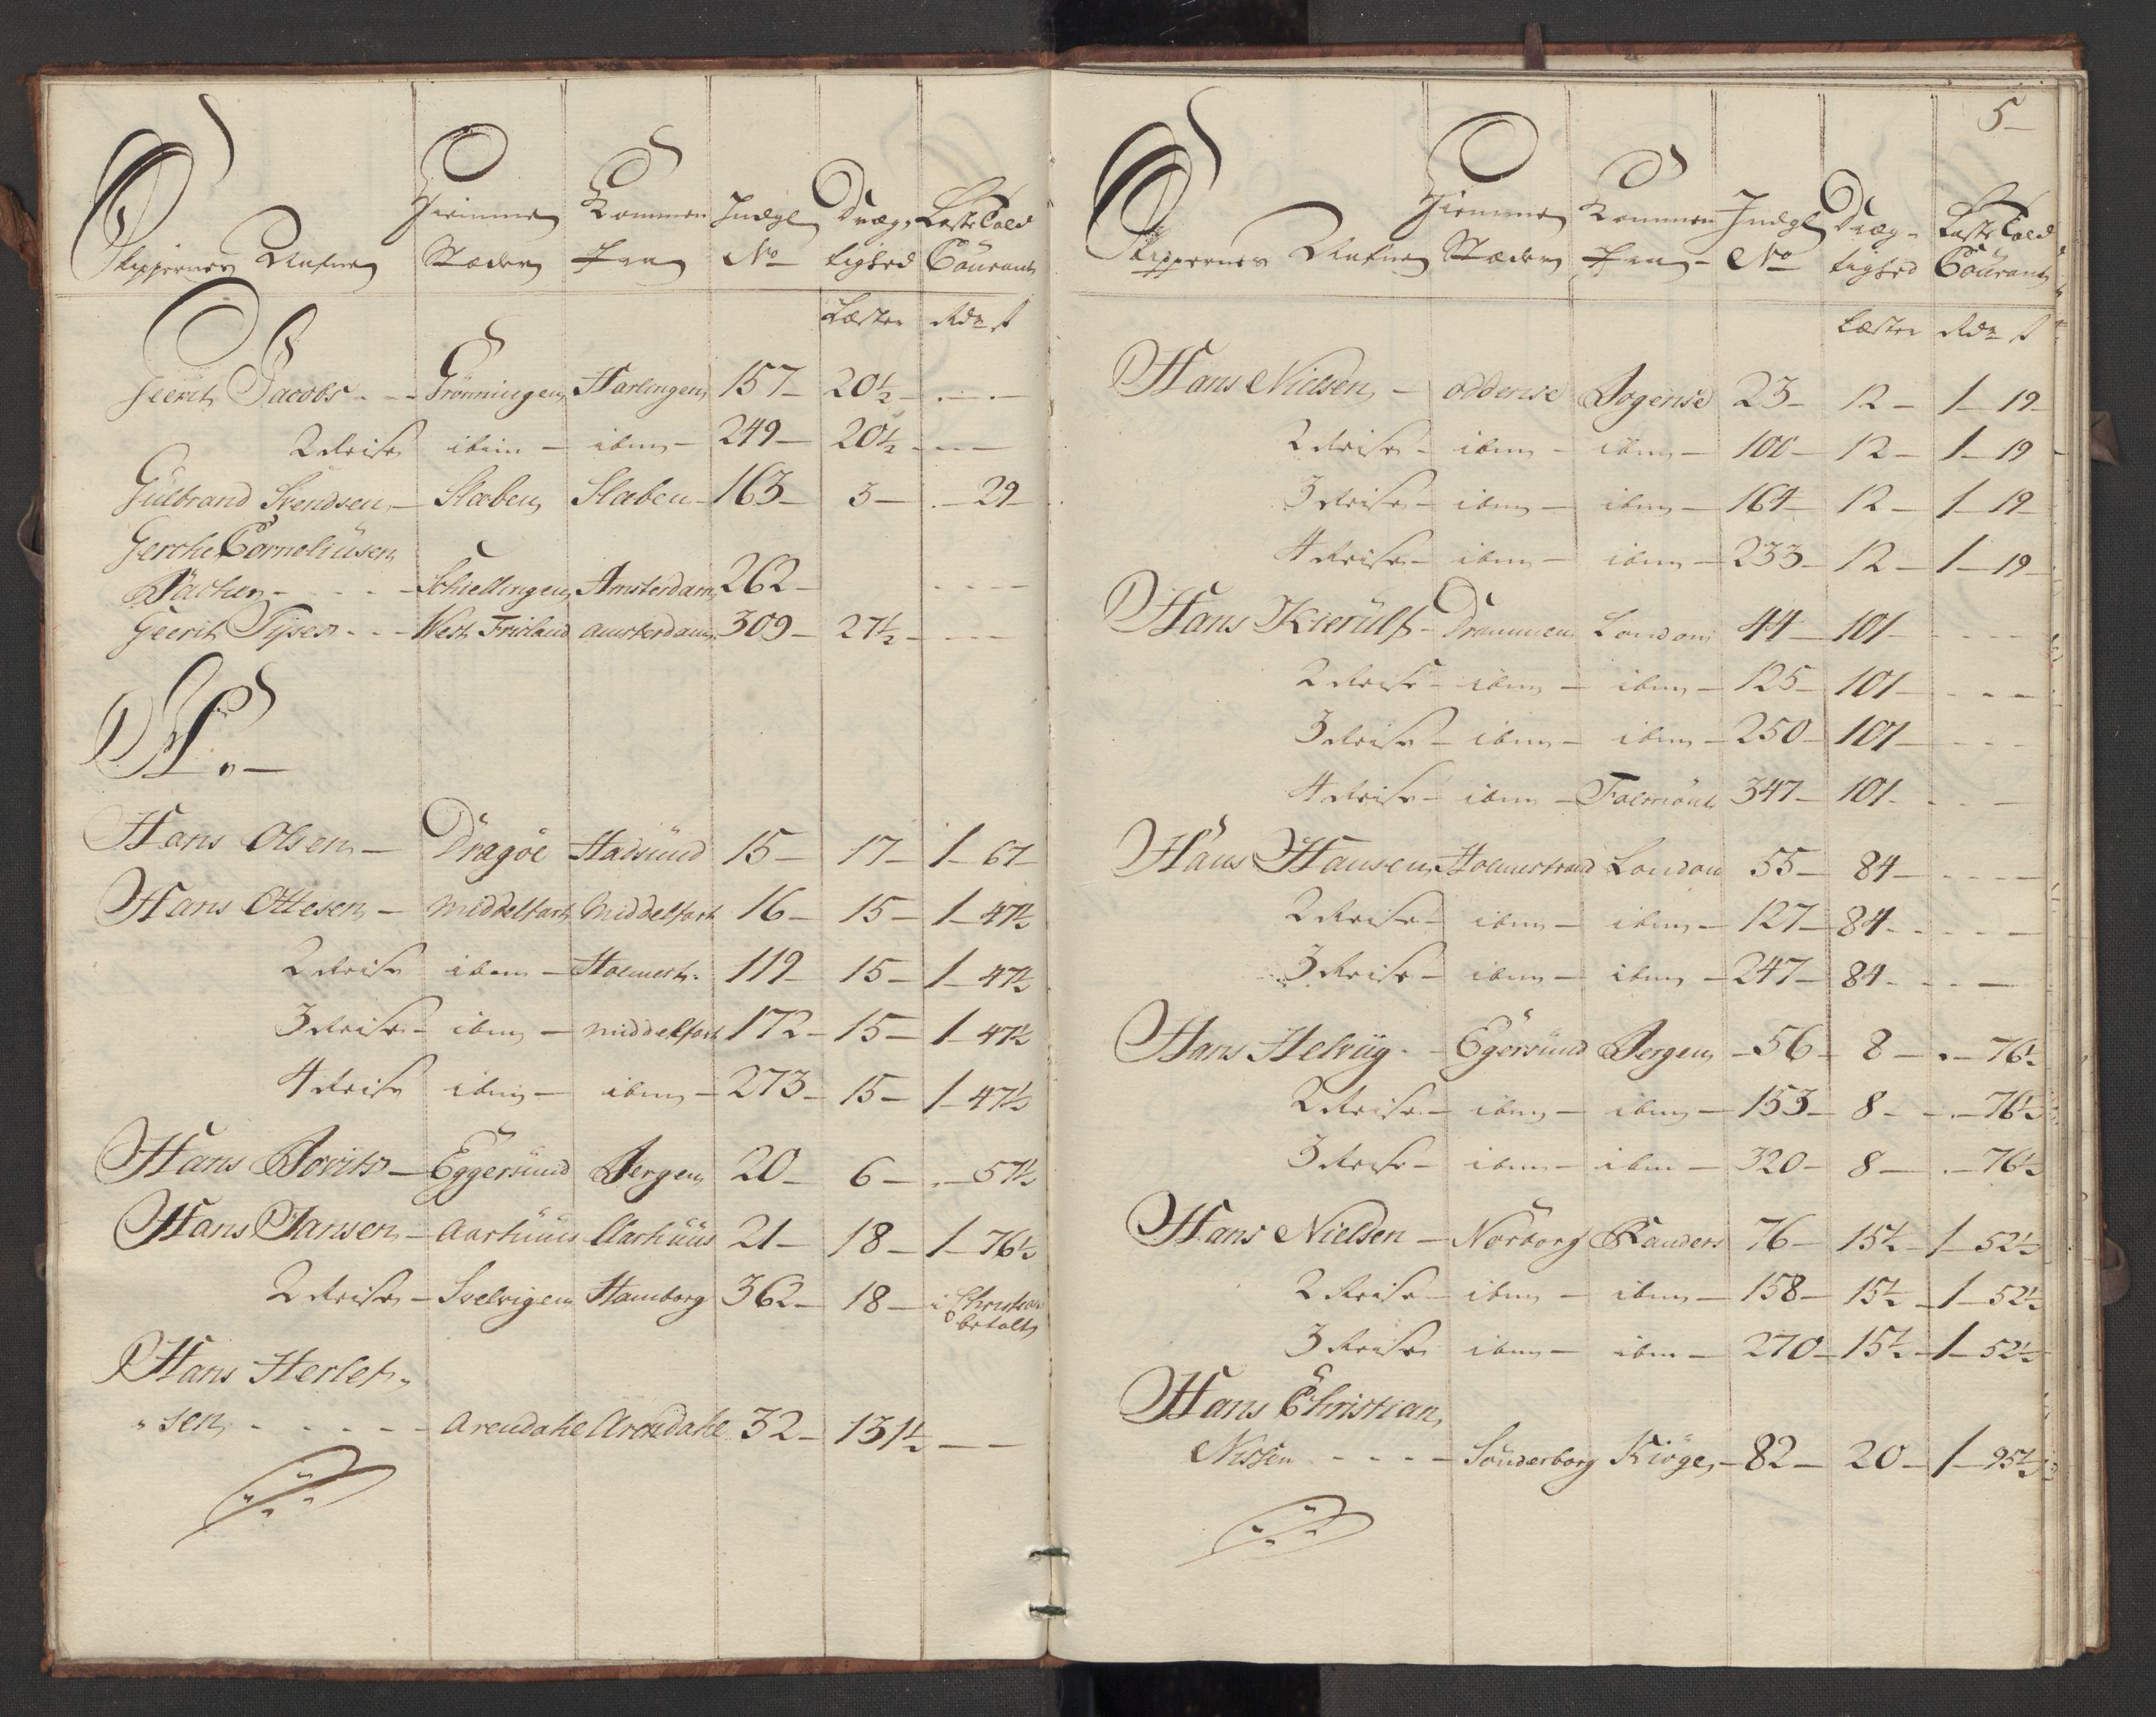 Skippernes Nafne Hiemme Stæder Kommen Fra Indgl No Dræg- tighed Læste Told Courant
Læster Rdr s
Geerit Jacobs - - Grønningen Harlingen 157- 20½ - . — . —
2 Reise ibm - ibm - 249 - 20½ - - —
Gulbrand Svendsen - Slæben Slæben - 163 - 3 - . - 29 -
Gercke Corneliusen
Backer - - - - - Schiellingen Amsterdam 262 - - - - -
Geerit Tÿses - - - West Frisland Amsterdam 309 - 27½ - - - -
H. -
Hans Olsen - Dragøe Hadsund 15 - 17 - 1 - 67 -
Hans Ottesen - Middelfart Middelfart 16 - 15 - 1 - 47½
2 Reise ibm - Holmestr. 119 - 15 - 1 - 47½
3 Reise - ibm - Middelfart 172 - 15 - 1 - 47½
4 Reise ibm - ibm - 273 - 15 - 1 - 47½
Hans - Eggersund Bergen 20 - 6 - . - 57½
Hans Jansen - Aarhuus Aarhuus 21 - 18 - 1 - 76½
2 Reise - Svelvigen Hamborg 362 - 18 - i Christian
betalt
Hans Herlef-
" sen - - - - - Arendahl Arendahl 32 - 131½ - —
5 -
Skippernes Nafne Hiemme Stæder Kommen Fra - Indgl No Dræg- tighed Læste Told Courant
Læster Rdr s
Hans Nielsen - Oddense Bogense 23 - 12 - 1 - 19 -
2 Reise - ibm - ibm - 100 - 12 - 1 - 19
3 Reise - ibm - ibm - 164 - 12 - 1 - 19 -
4 Reise - ibm - ibm - 233 - 12 - 1 - 19 -
Hans Kierulf - Drammen London 44 - 101 - - - - -
2 Reise - ibm - ibm - 125 - 101 - - - -
3 Reise - ibm - ibm - 250 - 101 - - - -
4 Reise - ibm - Falmout 347 - 101 - - - —
Hans Hansen Holmestrand London 55 - 84 - - - - -
2 Reise - ibm - ibm - 127 - 84 - - - - -
3 Reise - ibm - ibm - 247 - 84 - - - —
Hans Helviig - - Egersund Bergen - 56 - 8 - . - 76½
2 Reise - ibm - ibm - 153 - 8 - - . - 76½
3 Reise - ibm - ibm - 320 - 8 - . - 76½
Hans Nielsen - Norborg Randers 76 - 15½ - 1 - 52½
2 Reise - ibm - ibm - 158 - 15½ - 1 - 52½
3 Reise ibm - ibm - 270 - 15½ - 1 - 52½
Hans Christian
Nissen - - - - Sønderborg Kiøge - 82 - 20 - 1 - 95½